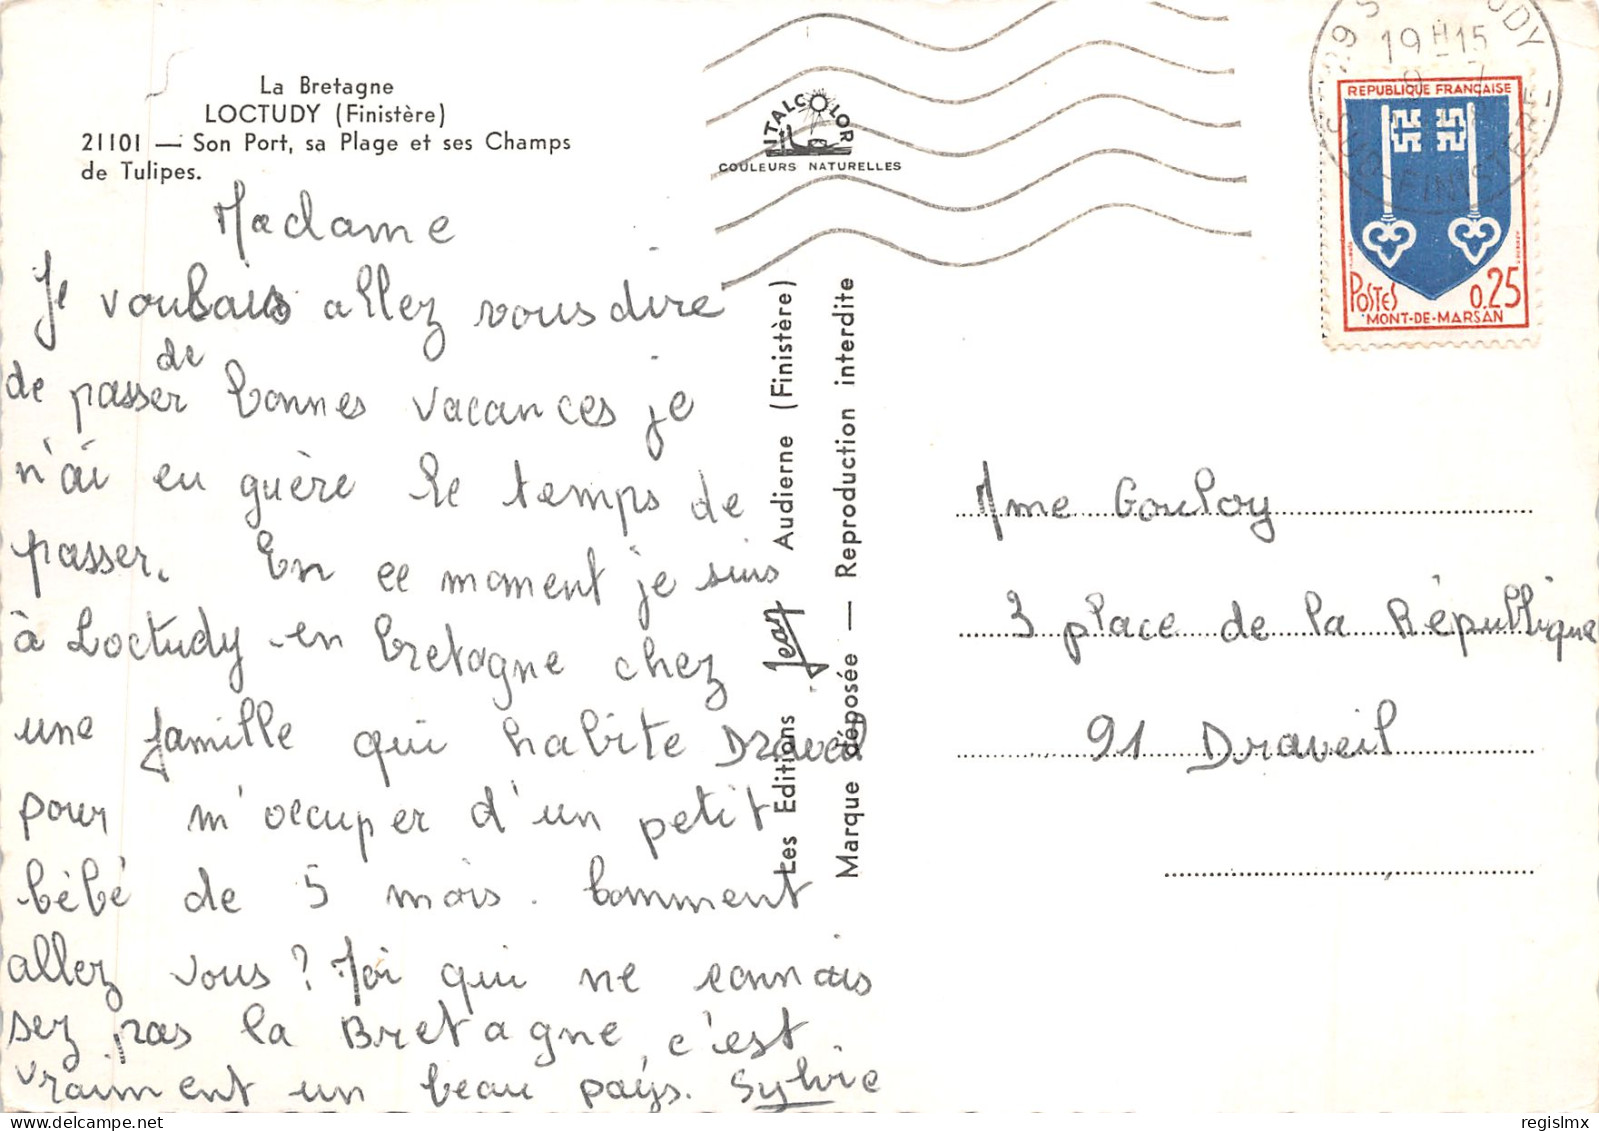 La Bretagne
LOCTUDY (Finistère)
21101 — Son Port, sa Plage et ses Champs
de Tulipes.
VITALCOLOR
COULEURS NATURELLES
19 H 15
FINISTERE
REPUBLIQUE FRANÇAISE
POSTES 0.25
MONT-DE-MARSAN
Madame
Je voulais allez vous dire
de
de passer bonnes vacances je
n'ai eu guère le temps de
passer. En ce moment je suis
à Loctudy en bretagne chez
une famille qui habite Draveil
pour m'occuper d'un petit
bébé de 5 mois. Comment
allez vous? Moi qui ne connais
sez pas la Bretagne, c'est
vraiment un beau pays. Sylvie
Les Editions Jean Audierne (Finistère)
Marque déposée — Reproduction interdite
Mme Gouloy
3 place de la République
91 Draveil
regislmx